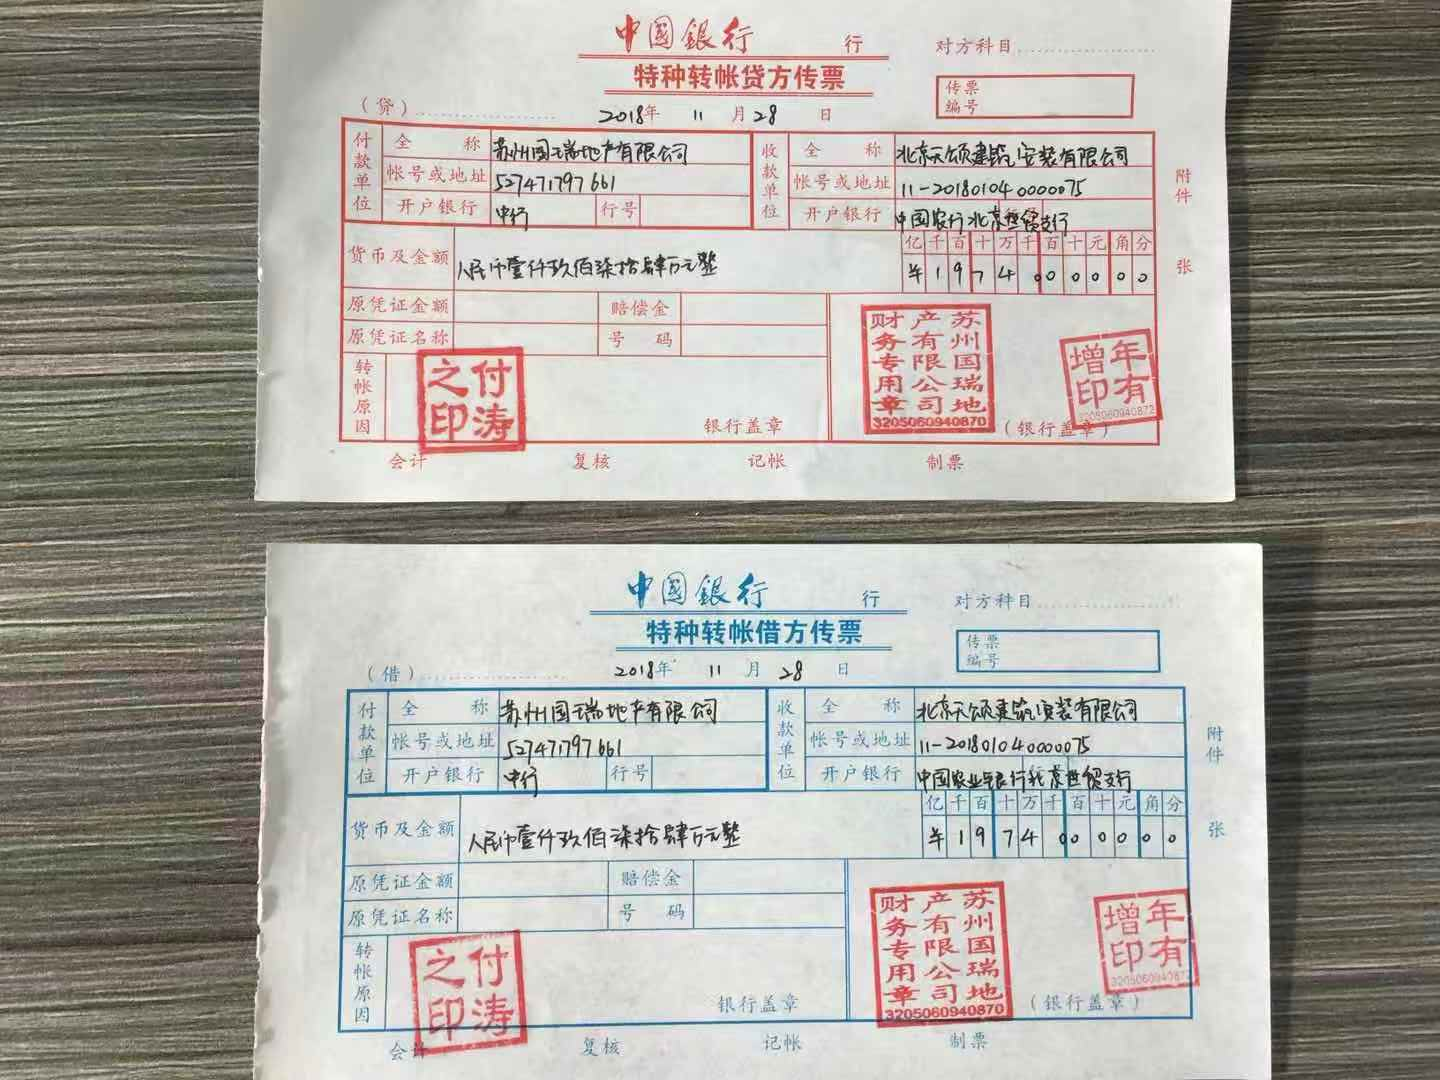 中國銀行 行 对方科目
特种转帐贷方传票
传票编号
（贷） 2018年 11月28日
付款单位 全称 苏州国瑞地产有限公司 收款单位 全称 北京天颂建筑安装有限公司
帐号或地址 527471797661 帐号或地址 11-201801040000075
开户银行 中行 行号 开户银行 中国农行北京世贸支行
货币及金额 人民币壹仟玖佰柒拾肆万元整 亿千百十万千百十元角分
¥1974000000
附件 张
原凭证金额 赔偿金
原凭证名称 号码
转帐原因 银行盖章 （银行盖章）
付涛之印
苏州国瑞地产有限公司财务专用章
3205060940870
年有增印
3205060940872
会计 复核 记帐 制票
中國銀行 行 对方科目
特种转帐借方传票
传票编号
（借） 2018年 11月28日
付款单位 全称 苏州国瑞地产有限公司 收款单位 全称 北京天颂建筑安装有限公司
帐号或地址 527471797661 帐号或地址 11-201801040000075
开户银行 中行 行号 开户银行 中国农业银行北京世贸支行
货币及金额 人民币壹仟玖佰柒拾肆万元整 亿千百十万千百十元角分
¥1974000000
附件 张
原凭证金额 赔偿金
原凭证名称 号码
转帐原因 银行盖章 （银行盖章）
付涛之印
苏州国瑞地产有限公司财务专用章
3205060940870
年有增印
3205060940872
会计 复核 记帐 制票